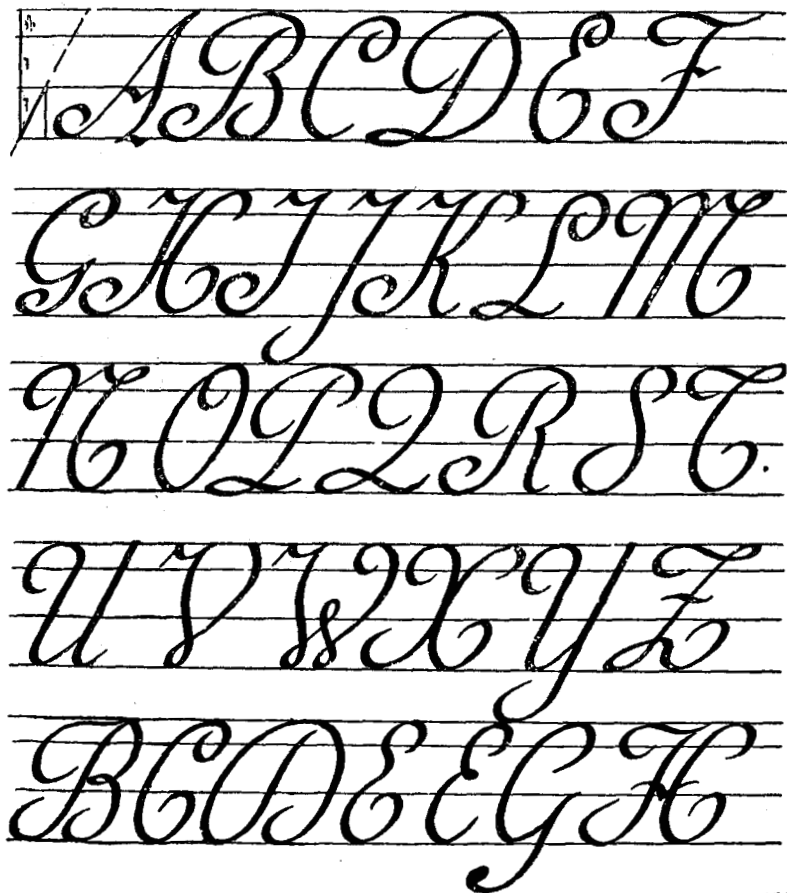 A B C D E F
G H I J K L M
N O P Q R S T.
U V W X Y Z
B C D E E G H